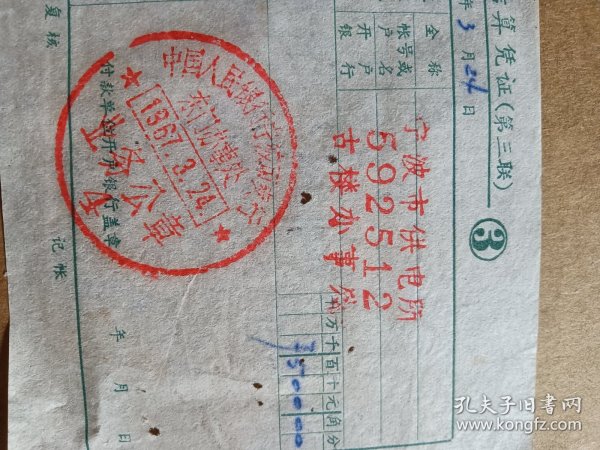 算凭证(第三联)
年3月24日
③
全称
帐号或户名
开户银行
宁波市供电所
592512
古楼办事
万千百十元角分
中国人民银行
1967.3.24
业务公章
付款单位开户银行盖章
复核
记帐
年月日
孔夫子旧书网
www.kongfz.com